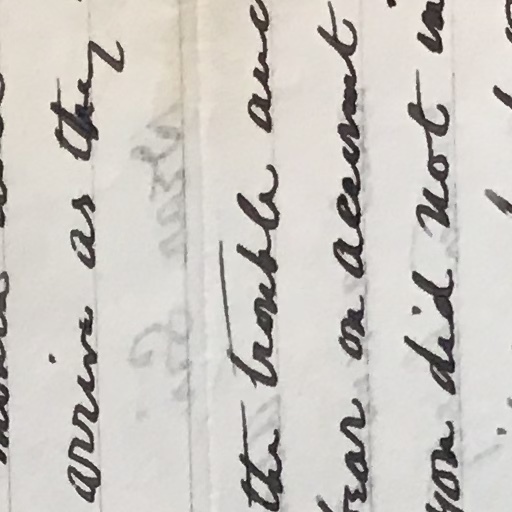 arrive as they
the trouble and
bear on account
you did not in